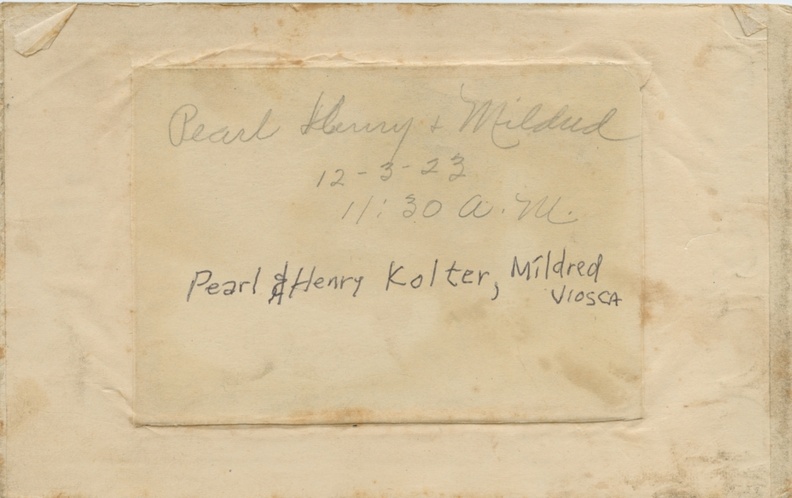 Pearl Henry & Mildred
12-3-23
11:30 A.M.
Pearl & Henry Kolter, Mildred
VIOSCA